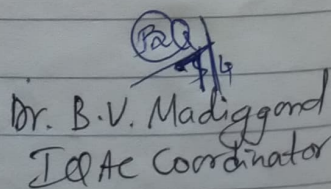 Dr. B.V. Madiggond
IQAC Coordinator